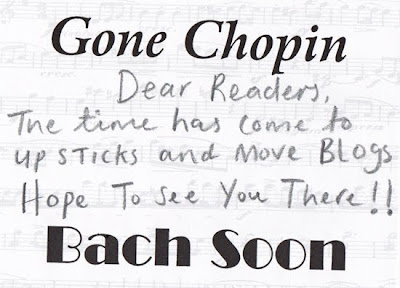 Gone Chopin
Dear Readers,
The time has come to
up sticks and Move Blogs
Hope To See You There!!
Bach Soon